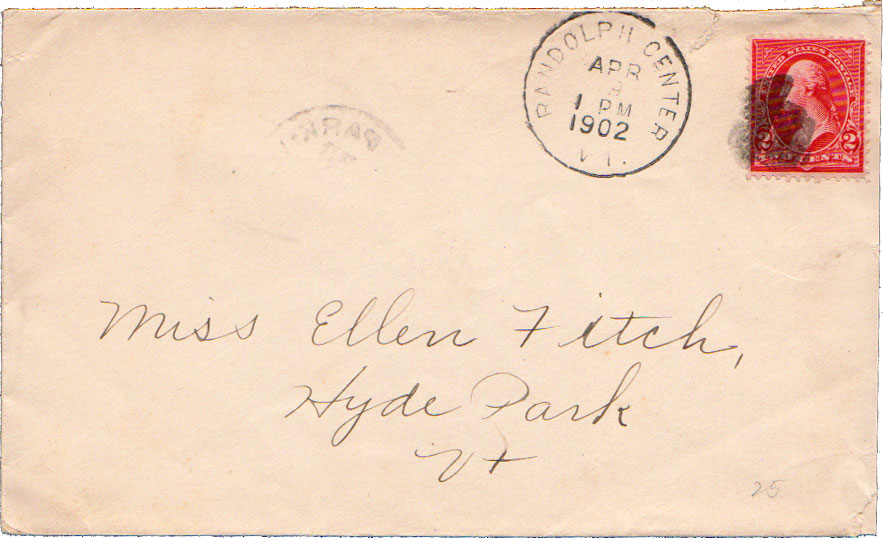 RANDOLPH CENTER
APR
1 PM
1902
VT.
UNITED STATES POSTAGE
2 2
CENTS
PARK
Miss Ellen Fitch,
Hyde Park
Vt
25